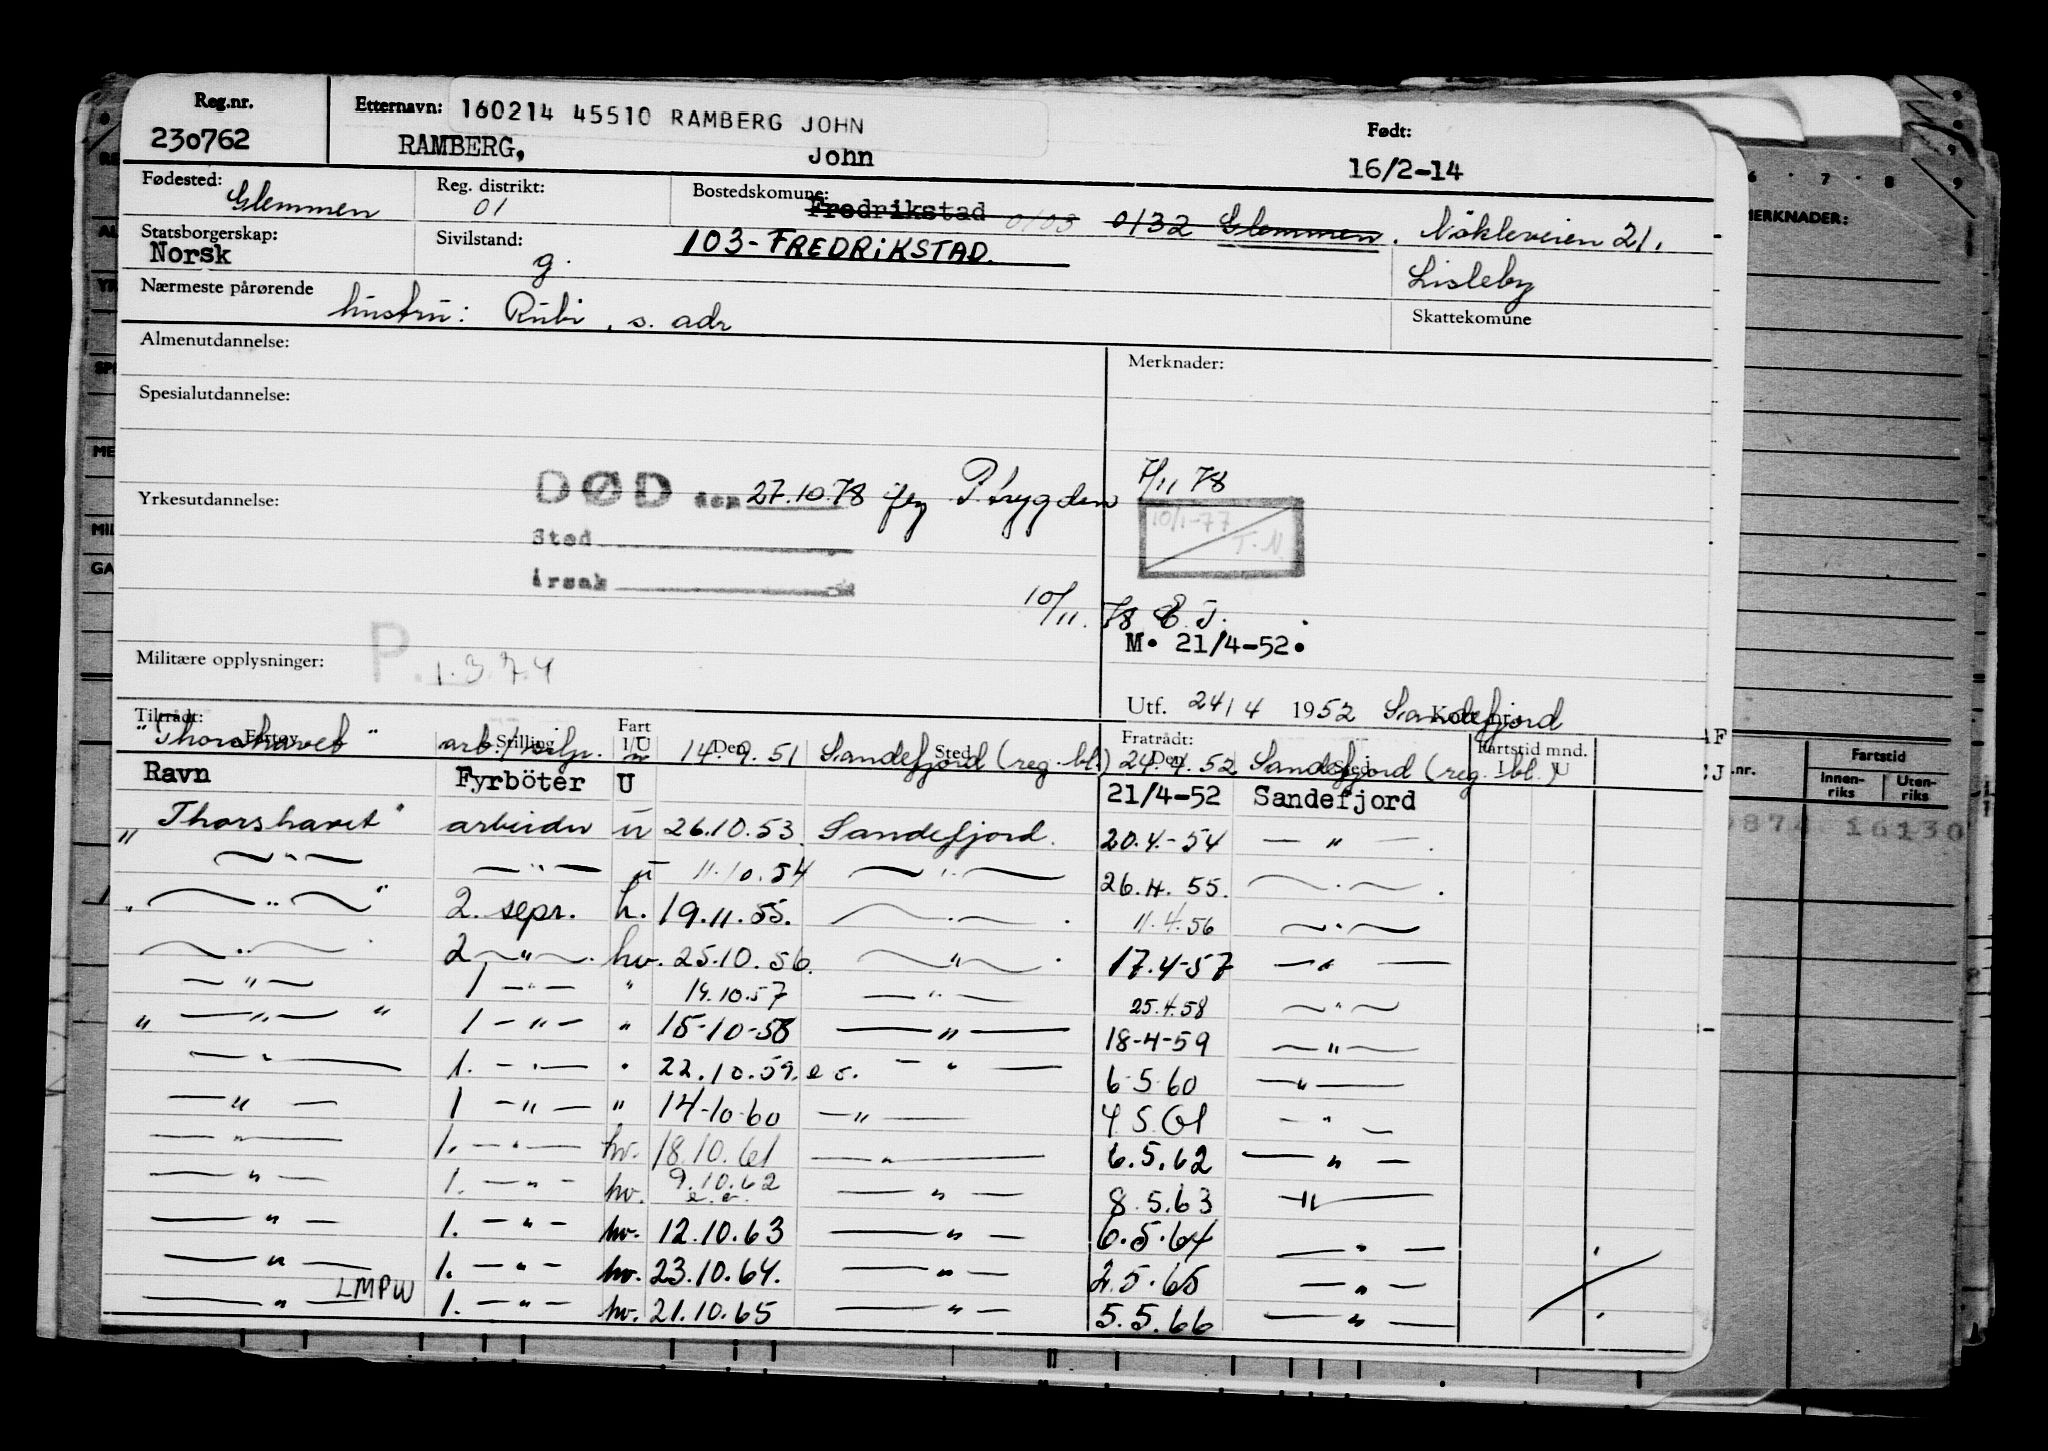 Reg.nr. Etternavn: 160214 45510 RAMBERG JOHN Født:
230762 RAMBERG, John 16/2-14
Fødested: Reg. distrikt: Bostedskomune:
Glemmen 01 Fredrikstad 0103 0132 Glemmen. Nökleveien 21.
Statsborgerskap: Sivilstand: 103-FREDRIKSTAD.
Norsk g. Lisleby
Nærmeste pårørende hustru: Rubi, s. adr Skattekomune
Almenutdannelse: Merknader:
Spesialutdannelse:
Yrkesutdannelse: DØD den 27.10.78 P. trygden 7/11 78
Sted 10/1-77 T.N.
Årsak
10/11. 78 E.J.
M. 21/4-52.
Militære opplysninger: P. 1.3.74
Utf. 24/4 1952 Sandefjord
Tiltrådt: Fartøy Stilling Fart I/U Den Sted Fratrådt: Den Sted Fartstid mnd. I U
"Thorshavet" 14.9.51 Sandefjord (reg. bl.) 24.4.52 Sandefjord (reg. bl.)
Ravn Fyrböter U 21/4-52 Sandefjord
"Thorshavet" arbeider u 26.10.53. Sandefjord. 20.4.-54 — " —.
— " — — " — u 11.10.54 — " — 26.4.55. — " —.
" — " — " 2. sepr. h. 19.11.55. — " —. 11.4.56 — " —
— " —. 2 — " —. hv. 25.10.56. — " —. 17.4-57 — " —
— " — 1 — " — " 14.10.57 — " — 25.4.58 — " —
" — " — " 1 — " — " 15-10-58 — " — 18-4-59 — " —
— " — 1. — " — " 22.10.59. — " — 6.5.60 — " —
— " — 1 — " — " 14-10-60 — " — 4.5.61 — " —
— " — 1. — " — hv. 18.10.61 — " — 6.5.62 — " —
— " — 1. — " — hv. 9.10.62 — " — 8.5.63 — " —
— " — 1. — " — hv. 12.10.63 — " — 6.5.64 — " —
— " — 1. — " — hv. 23.10.64. — " — 2.5.65 — " —
— " — LMPW 1. — " — hv. 21.10.65 — " — 5.5.66 — " —
6 7 8 9
MERKNADER:
Fartstid
Innen-riks Uten-riks
16130